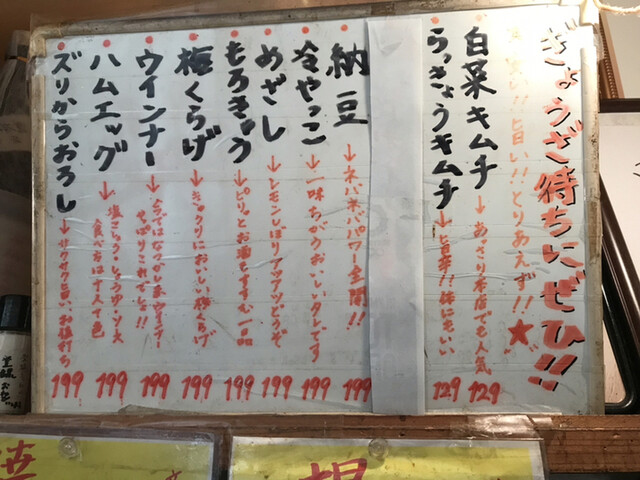 ぎょうざ待ちにぜひ!!
旨い!!とりあえず!!★
白菜キムチ→あっさり本店でも人気 129
らっきょうキムチ→旨辛!!体にもいい 129
納豆→ネバネバパワー全開!! 199
冷やっこ→一味ちがうおいしいタレです 199
めざし→レモンしぼりアツアツどうぞ 199
もろきゅう→ピリッとお酒もすすむ一品 199
梅くらげ→キュウリにおいしい梅くらげ 199
ウインナー→やっぱりこれでしょ!! 199
ハムエッグ→塩こしょう・しょうゆ・ソース食べ方は十人十色 199
ズリからおろし→サクサク旨い お値打ち 199
焼